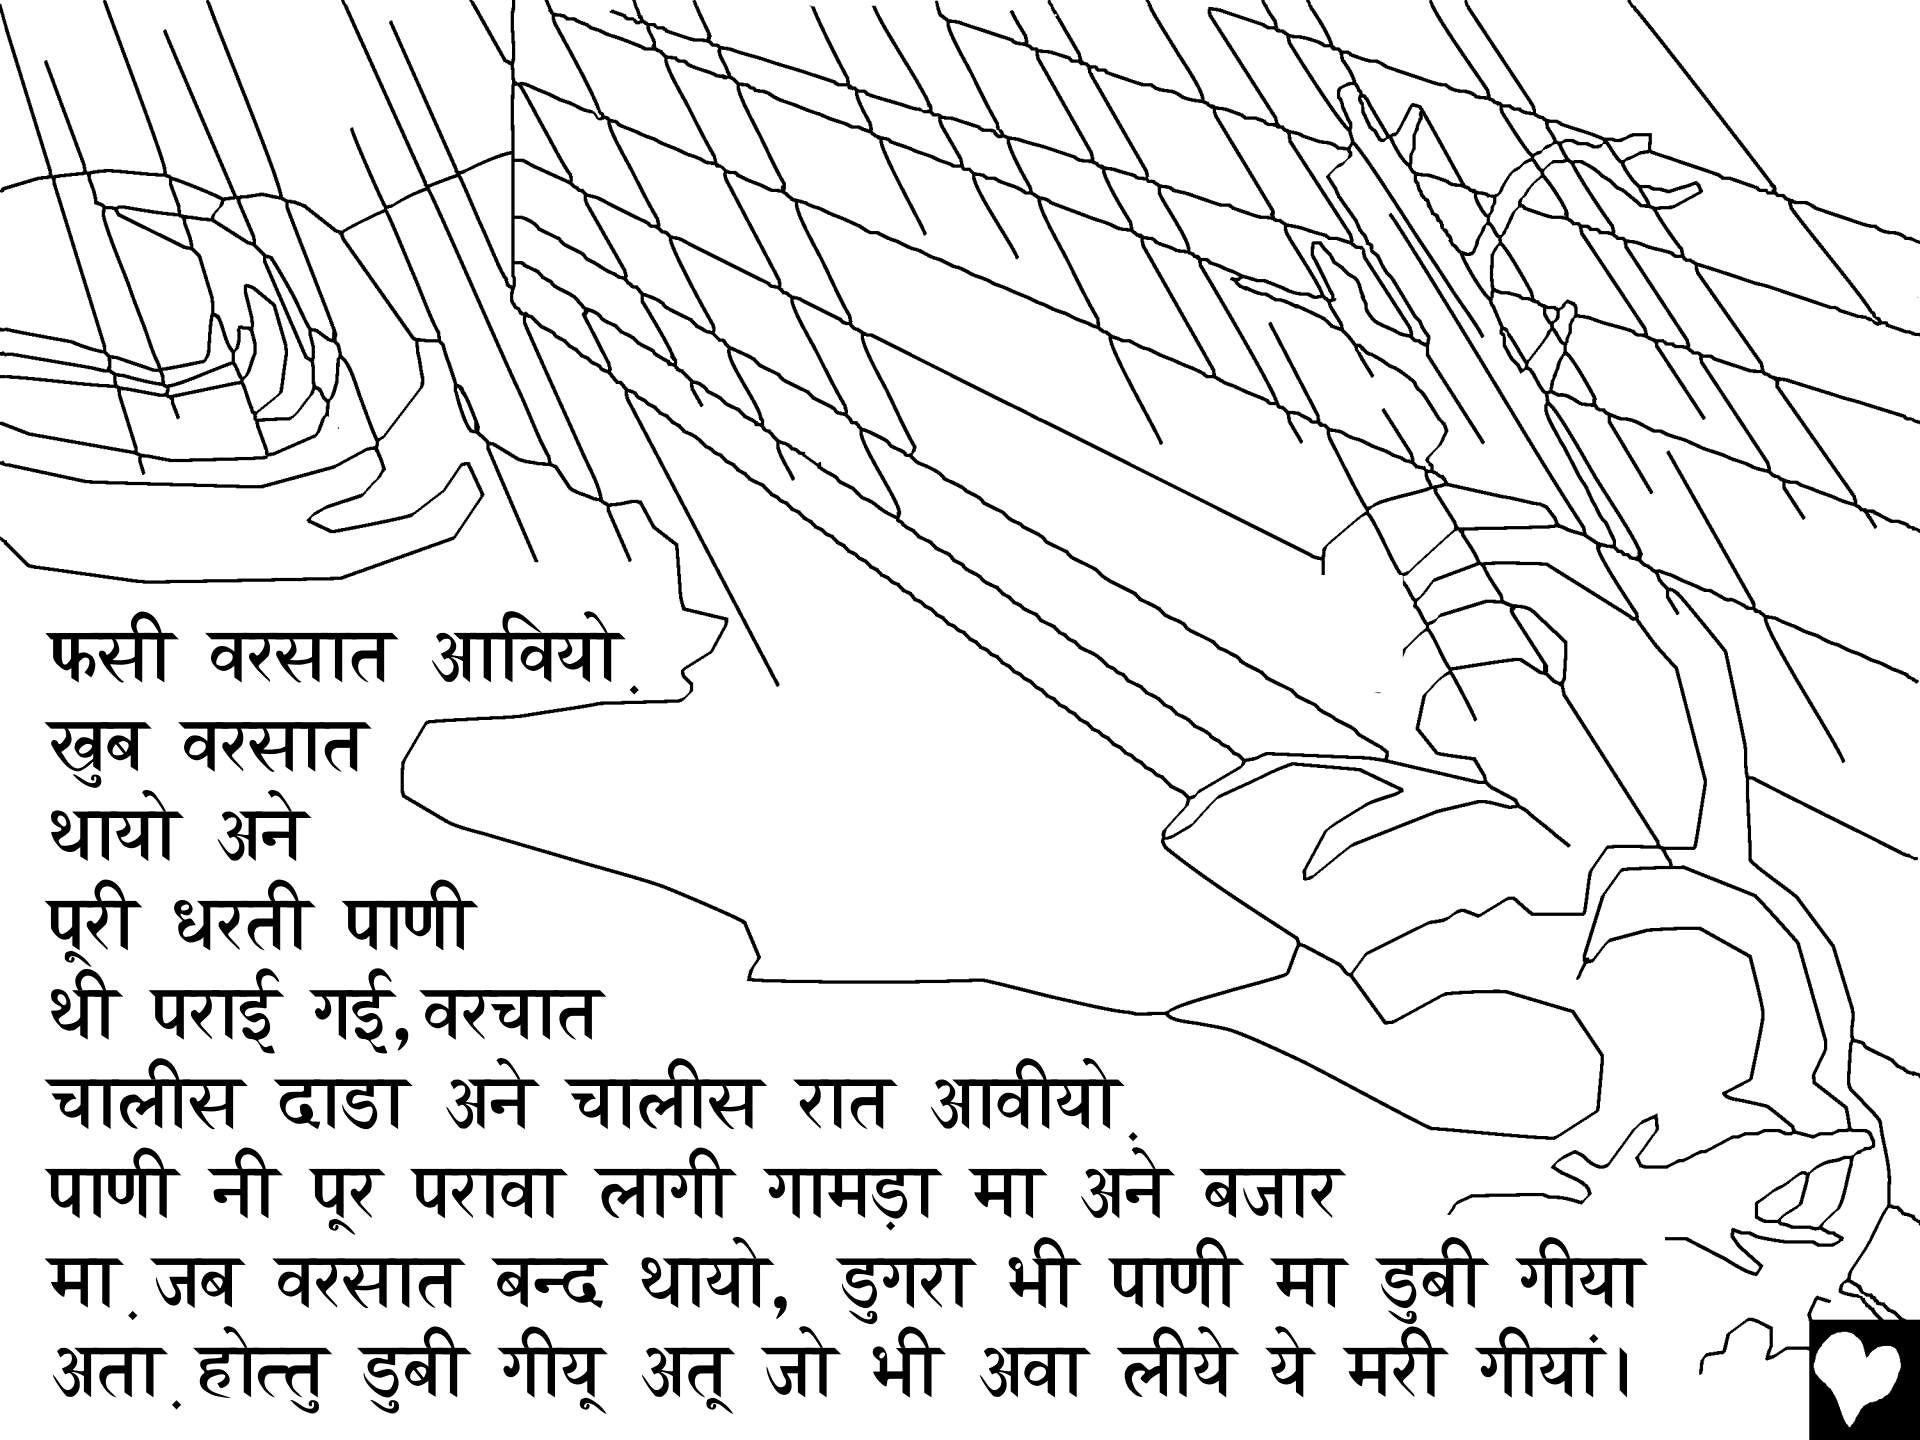 फसी वरसात आवियो.
खुब वरसात
थायो अने
पूरी धरती पाणी
थी पराई गई,वरचात
चालीस दाडा अने चालीस रात आवीयो.
पाणी नी पूर परावा लागी गामड़ा मा अने बजार
मा.जब वरसात बन्द थायो, डुगरा भी पाणी मा डुबी गीया
अता.होत्तु डुबी गीयू अतू जो भी अवा लीये ये मरी गीयां।